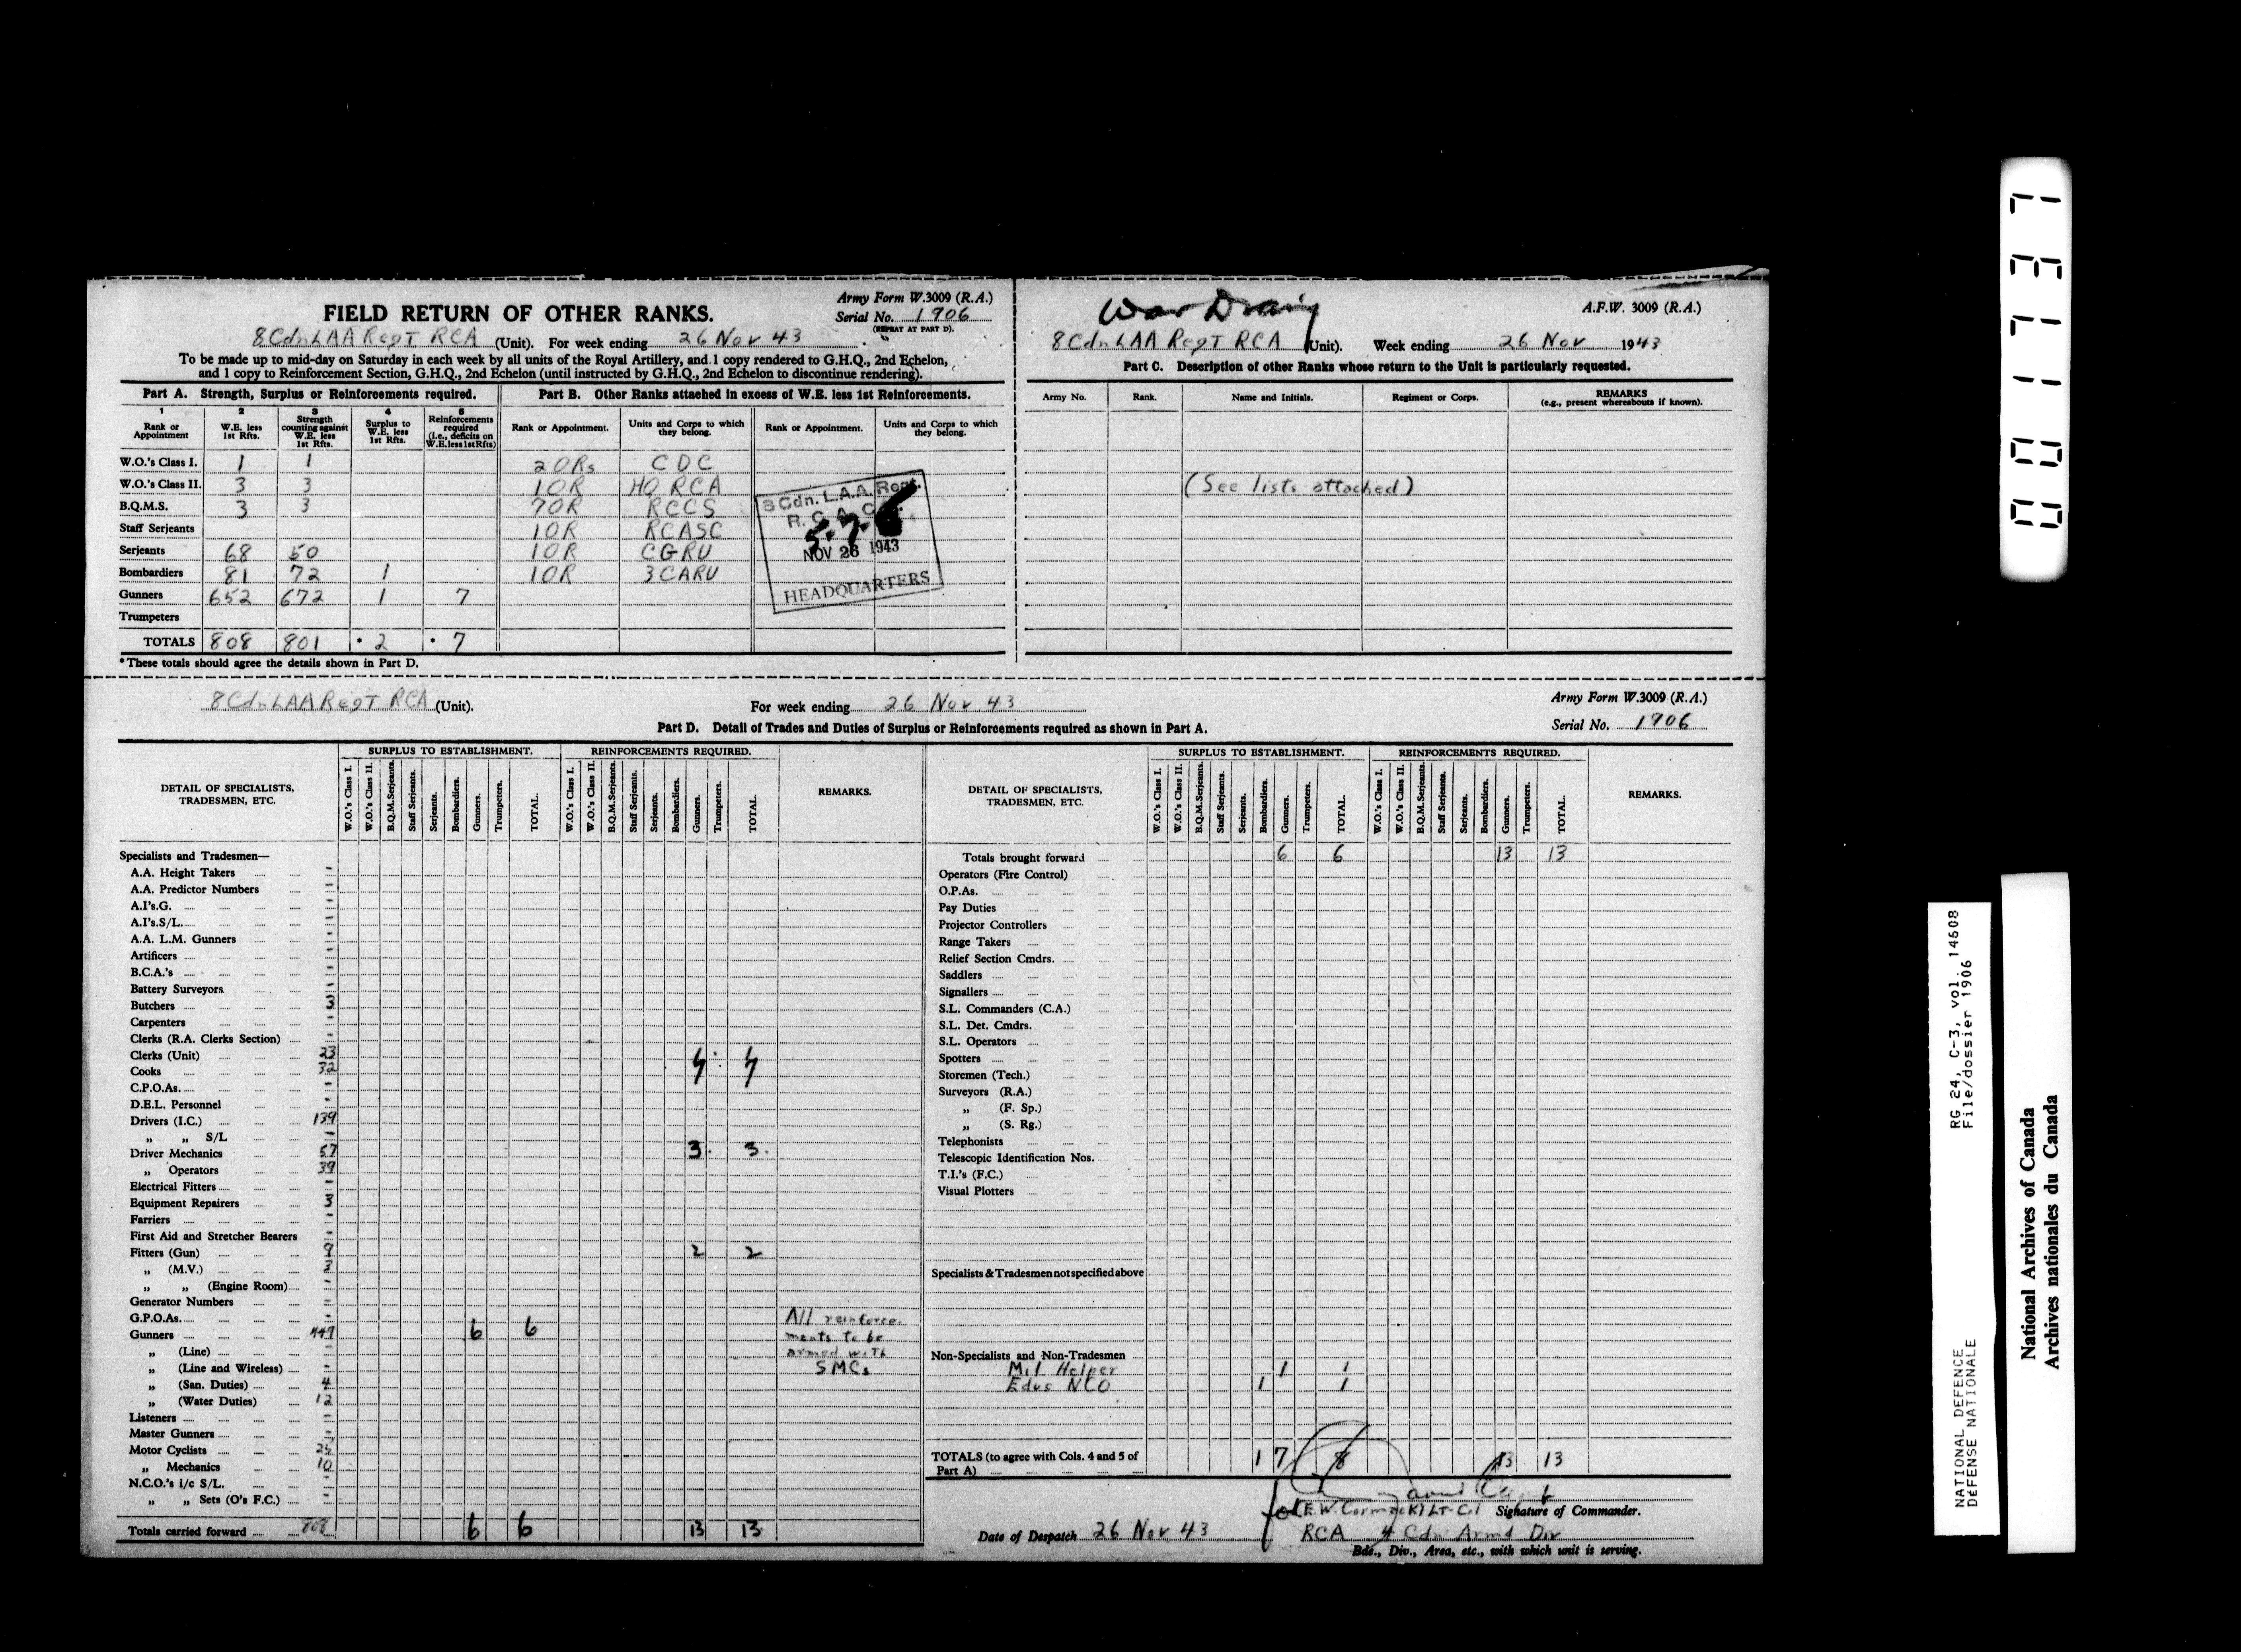 War Diary
FIELD RETURN OF OTHER RANKS.
Army Form W.3009 (R.A.)
Serial No. 1906
(REPEAT AT PART D).
8 Cdn LAA Regt RCA (Unit). For week ending 26 Nov 43
To be made up to mid-day on Saturday in each week by all units of the Royal Artillery, and 1 copy rendered to G.H.Q., 2nd Echelon,
and 1 copy to Reinforcement Section, G.H.Q., 2nd Echelon (until instructed by G.H.Q., 2nd Echelon to discontinue rendering).
Part A. Strength, Surplus or Reinforcements required.
Part B. Other Ranks attached in excess of W.E. less 1st Reinforcements.
1 2 3 4 5
Rank or Appointment
W.E. less 1st Rfts.
Strength counting against W.E. less 1st Rfts.
Surplus to W.E. less 1st Rfts.
Reinforcements required (i.e., deficits on W.E. less 1st Rfts)
Rank or Appointment.
Units and Corps to which they belong.
Rank or Appointment.
Units and Corps to which they belong.
W.O.'s Class I. 1 1 2 ORs CDC
W.O.'s Class II. 3 3 1 OR HQ RCA
B.Q.M.S. 3 3 7 OR RCCS
Staff Serjeants 1 OR RCASC
Serjeants 68 50 1 OR CGRU
Bombardiers 81 72 1 1 OR 3 CARU
Gunners 652 672 1 7
Trumpeters
TOTALS 808 801 * 2 * 7
*These totals should agree the details shown in Part D.
8 Cdn. L.A.A. Regt.
R. C. A., C.
NOV 26 1943
HEADQUARTERS
A.F.W. 3009 (R.A.)
8 Cdn LAA Regt RCA (Unit). Week ending 26 Nov 1943
Part C. Description of other Ranks whose return to the Unit is particularly requested.
Army No. Rank. Name and Initials. Regiment or Corps. REMARKS
(e.g., present whereabouts if known).
(See lists attached)
8 Cdn LAA Regt RCA (Unit). For week ending 26 Nov 43
Army Form W.3009 (R.A.)
Serial No. 1906
Part D. Detail of Trades and Duties of Surplus or Reinforcements required as shown in Part A.
DETAIL OF SPECIALISTS, TRADESMEN, ETC.
SURPLUS TO ESTABLISHMENT. REINFORCEMENTS REQUIRED.
W.O.'s Class I. W.O.'s Class II. B.Q.M.Serjeants. Staff Serjeants. Serjeants. Bombardiers. Gunners. Trumpeters. TOTAL.
W.O.'s Class I. W.O.'s Class II. B.Q.M.Serjeants. Staff Serjeants. Serjeants. Bombardiers. Gunners. Trumpeters. TOTAL.
REMARKS.
Specialists and Tradesmen—
A.A. Height Takers -
A.A. Predictor Numbers -
A.I's.G. -
A.I's.S/L. -
A.A. L.M. Gunners -
Artificers -
B.C.A.'s -
Battery Surveyors -
Butchers 3
Carpenters -
Clerks (R.A. Clerks Section) -
Clerks (Unit) 23
Cooks 32
C.P.O.As. -
D.E.L. Personnel -
Drivers (I.C.) 139
„ „ S/L -
Driver Mechanics 57 3 3
„ Operators 39
Electrical Fitters -
Equipment Repairers 3
Farriers -
First Aid and Stretcher Bearers -
Fitters (Gun) 9 2 2
„ (M.V.) 3
„ „ (Engine Room) -
Generator Numbers -
G.P.O.As. - All reinforce-
Gunners 449 6 6 ments to be
„ (Line) - armed with
„ (Line and Wireless) - SMCs
„ (San. Duties) 4
„ (Water Duties) 12
Listeners -
Master Gunners -
Motor Cyclists
„ Mechanics 10
N.C.O.'s i/c S/L. -
„ „ Sets (O's F.C.) -
Totals carried forward 808 6 6 13 13
DETAIL OF SPECIALISTS, TRADESMEN, ETC.
SURPLUS TO ESTABLISHMENT. REINFORCEMENTS REQUIRED.
W.O.'s Class I. W.O.'s Class II. B.Q.M.Serjeants. Staff Serjeants. Serjeants. Bombardiers. Gunners. Trumpeters. TOTAL.
W.O.'s Class I. W.O.'s Class II. B.Q.M.Serjeants. Staff Serjeants. Serjeants. Bombardiers. Gunners. Trumpeters. TOTAL.
REMARKS.
Totals brought forward 6 6 13 13
Operators (Fire Control)
O.P.As.
Pay Duties
Projector Controllers
Range Takers
Relief Section Cmdrs.
Saddlers
Signallers
S.L. Commanders (C.A.)
S.L. Det. Cmdrs.
S.L. Operators
Spotters
Storemen (Tech.)
Surveyors (R.A.)
„ (F. Sp.)
„ (S. Rg.)
Telephonists
Telescopic Identification Nos.
T.I.'s (F.C.)
Visual Plotters
Specialists & Tradesmen not specified above
Non-Specialists and Non-Tradesmen
Mil Helper 1 1
Educ NCO 1 1
TOTALS (to agree with Cols. 4 and 5 of Part A) 1 7 8 13 13
for (E.W. Cormack) Lt-Col Signature of Commander.
Date of Despatch 26 Nov 43 RCA 4 Cdn Armd Div
Bde., Div., Area, etc., with which unit is serving.
NATIONAL DEFENCE RG 24, C-3, vol. 14608
DÉFENSE NATIONALE File/dossier 1906
National Archives of Canada
Archives nationales du Canada